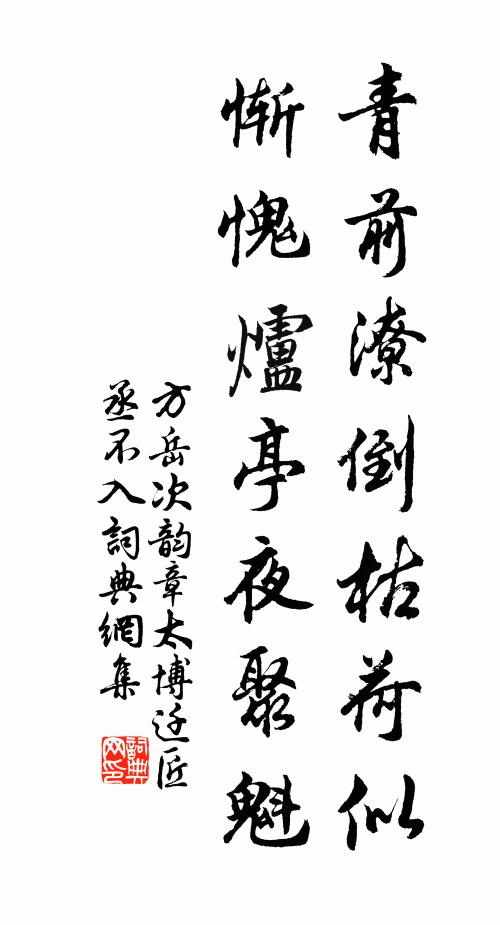 青前潦倒枯荷似
慚愧爐亭夜聚魁
方岳次韵章太博迁匠
丞不入詞典網集
詞典网印